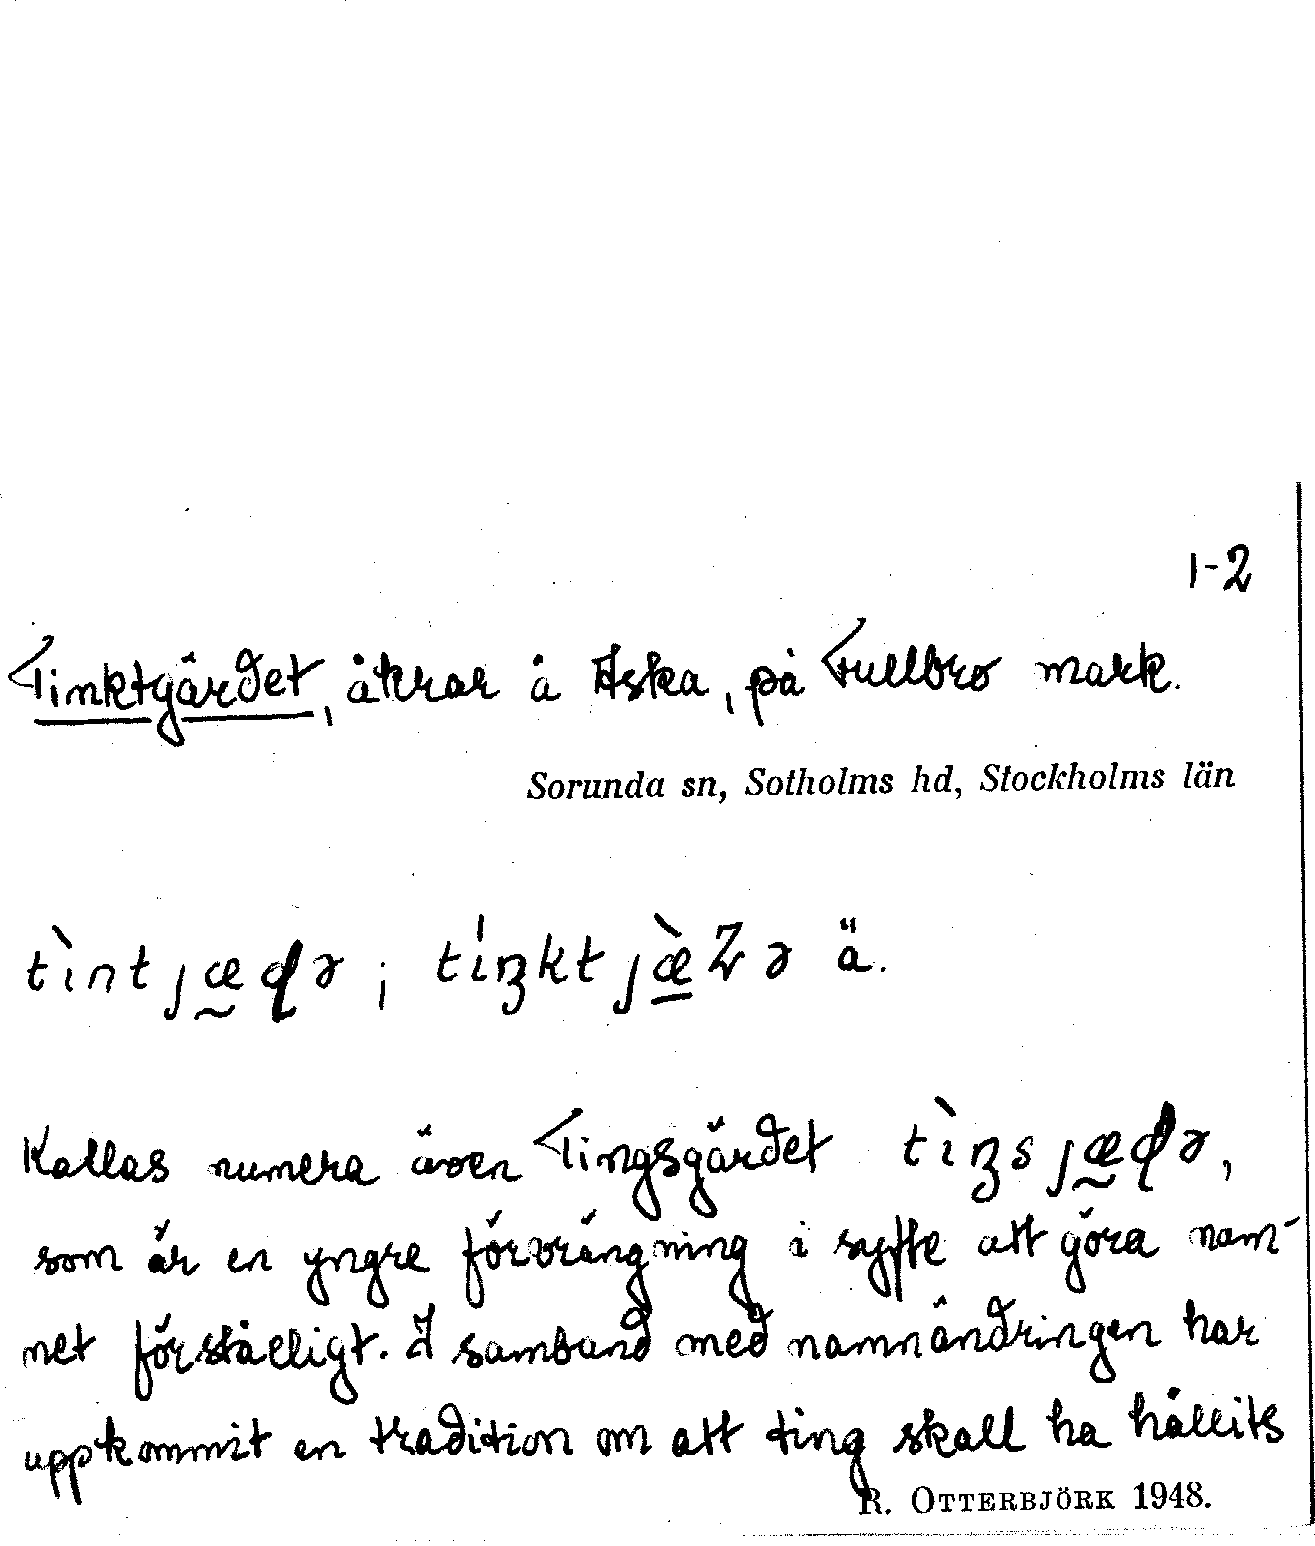 1-2
Timktgärdet, åkrar å Åska, på Fullbro mark.
Sorunda sn, Sotholms hd, Stockholms län
ä.
Kallas numera även Tingsgärdet
som är en yngre förvrängning i syfte att göra nam-
net förståeligt. I samband med namnändringen har
uppkommit en tradition om att ting skall ha hållits
R. OTTERBJÖRK 1948.